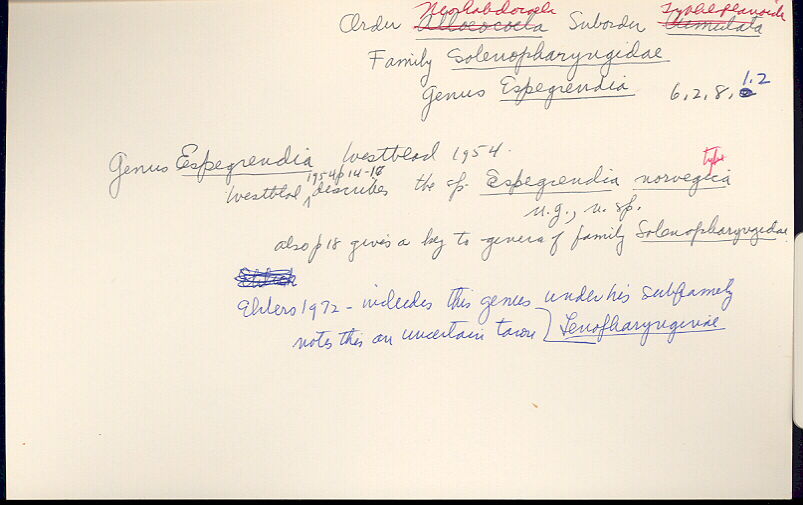 Neorhabdocoela Typhloplanoida
Order Alloeocoela Suborder Cumulata
Family Solenopharyngidae
Genus Espegrendia 6,2,8, 1.2
Genus Espegrendia Westblad 1954.
1954 p14-18 type
Westblad describes the sp. Espegrendia norvegica
n.g., n. sp.
also p18 gives a key to genera of family Solenopharyngidae
Ehlers 1972 - includes this genus under his subfamily
notes this an uncertain taxon Lenopharynginae